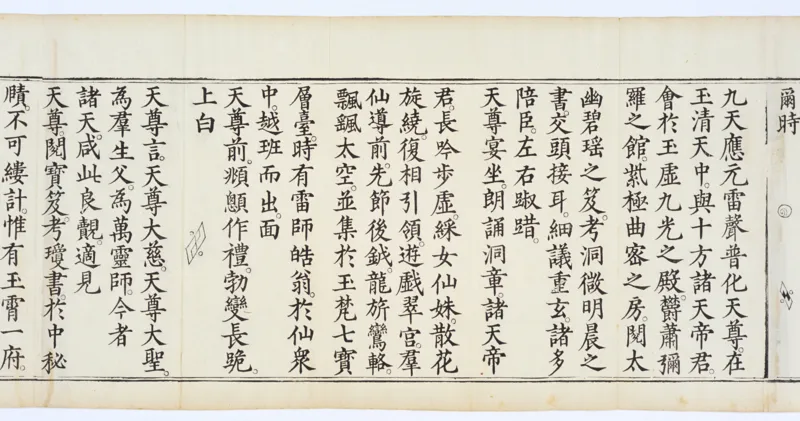 爾時
九天應元雷聲普化天尊。在
玉清天中。與十方諸天帝君。
會於玉虛九光之殿。欝蕭彌
羅之館。紫極曲密之房。閱太
幽碧瑶之笈。考洞微明晨之
書。交頭接耳。細議重玄。諸多
陪臣。左右踧踖。
天尊宴坐。朗誦洞章。諸天帝
君。長吟步虛。綵女仙姝。散花
旋繞。復相引領。遊戲翠宮。羣
仙導前。先節後鉞。龍旂鸞輅。
飄颻太空。並集於玉梵七寶
層臺。時有雷師皓翁。於仙衆
中。越班而出。面
天尊前。頫顖作禮。勃變長跪。
上白
天尊言。天尊大慈。天尊大聖。
為羣生父。為萬靈師。今者
諸天。咸此良覿。適見
天尊。閱寶笈。考瓊書。於中秘
賾。不可縷計。惟有玉霄一府。